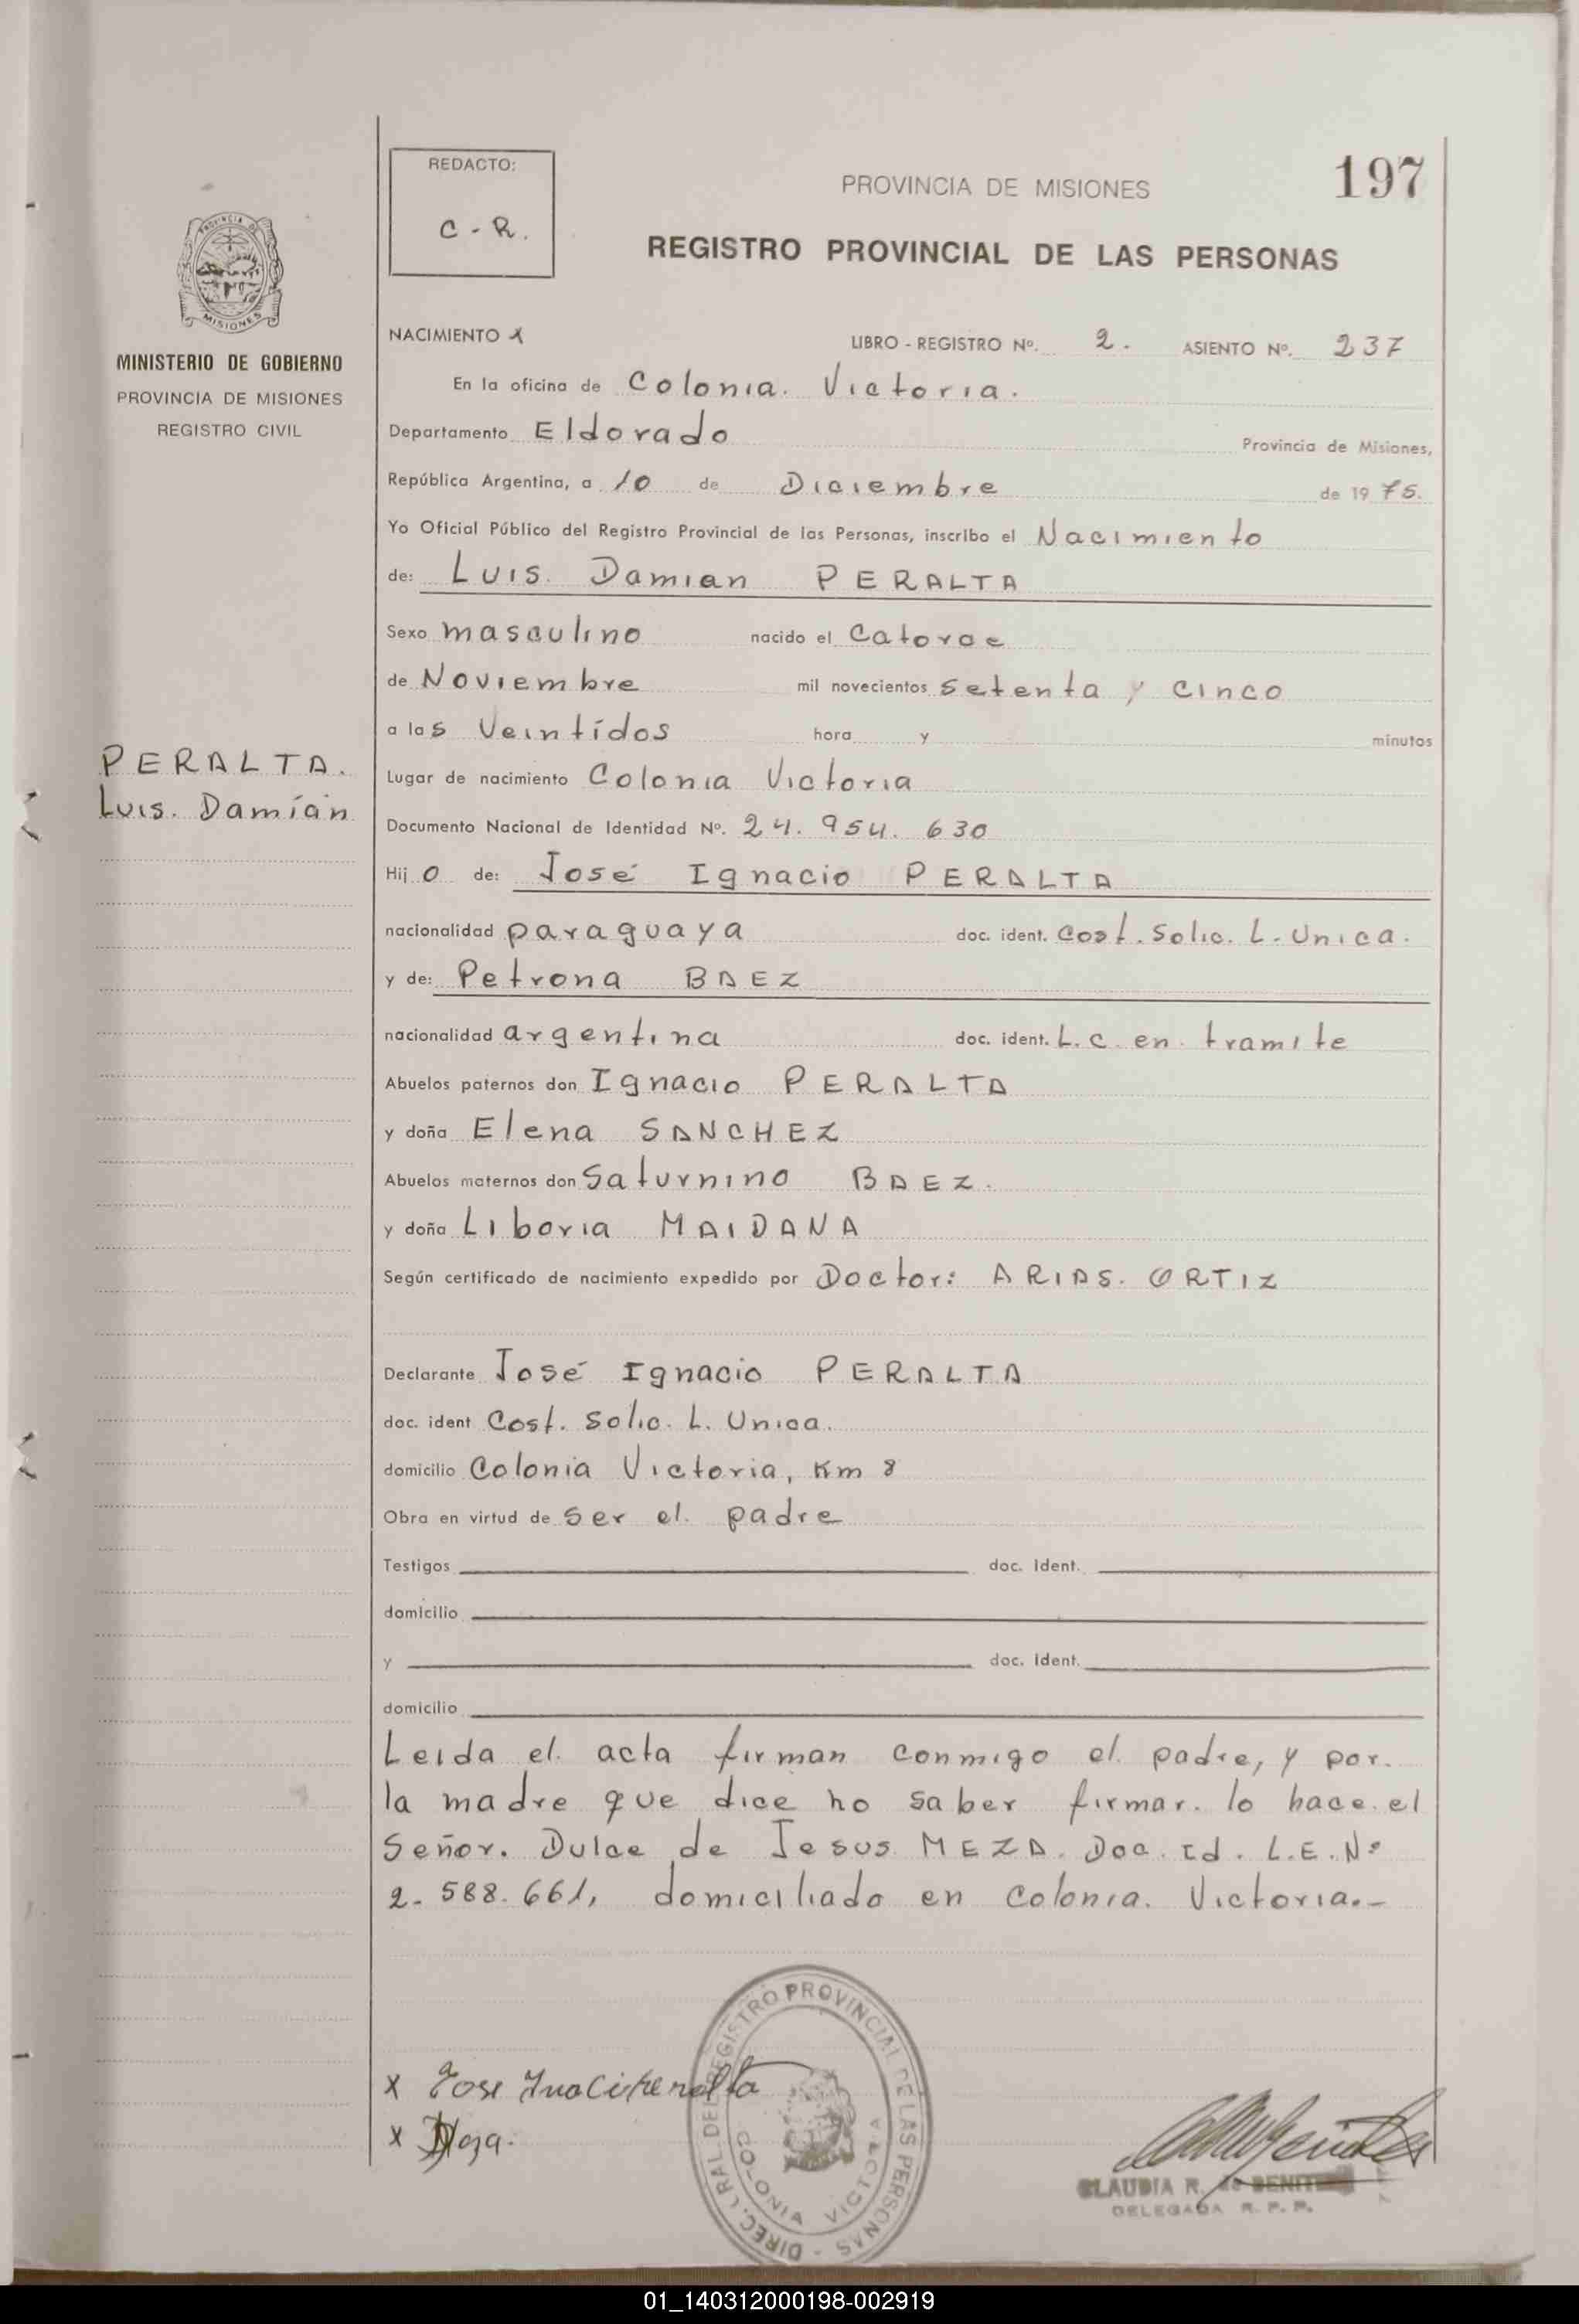 REDACTO:
C - R.
PROVINCIA DE MISIONES
197
REGISTRO PROVINCIAL DE LAS PERSONAS
PROVINCIA DE
MISIONES
MINISTERIO DE GOBIERNO
PROVINCIA DE MISIONES
REGISTRO CIVIL
PERALTA.
Luis. Damián
NACIMIENTO x LIBRO - REGISTRO Nº. 2. ASIENTO Nº. 237
En la oficina de Colonia. Victoria.
Departamento Eldorado Provincia de Misiones,
República Argentina, a 10 de Diciembre de 1975.
Yo Oficial Público del Registro Provincial de las Personas, inscribo el Nacimiento
de: Luis. Damian PERALTA
Sexo masculino nacido el Catorce
de Noviembre mil novecientos setenta y cinco
a las Veintídos hora y minutos
Lugar de nacimiento Colonia Victoria
Documento Nacional de Identidad Nº. 24. 954. 630
Hijo de: José Ignacio PERALTA
nacionalidad paraguaya doc. ident. Cost. Solic. L. Unica.
y de: Petrona BAEZ
nacionalidad argentina doc. ident. L.C. en tramite
Abuelos paternos don Ignacio PERALTA
y doña Elena SANCHEZ
Abuelos maternos don Saturnino BAEZ.
y doña Liboria MAIDANA
Según certificado de nacimiento expedido por Doctor: ARIAS. ORTIZ
Declarante José Ignacio PERALTA
doc. ident Cost. Solic. L. Unica.
domicilio Colonia Victoria, Km 8
Obra en virtud de ser el. padre
Testigos doc. ident.
domicilio
y doc. ident.
domicilio
Leida el. acta firman conmigo el. padre, y por.
la madre que dice no saber firmar. lo hace. el
Señor. Dulce de Jesus MEZA. Doc. Id. L.E. Nº
2. 588. 661, domiciliado en Colonia. Victoria.-
DIREC. GRAL DEL REGISTRO PROVINCIAL DE LAS PERSONAS -
COLONIA VICTORIA
x Jose
x
CLAUDIA R. de BENITEZ
DELEGADA R. P. P.
01_140312000198-002919